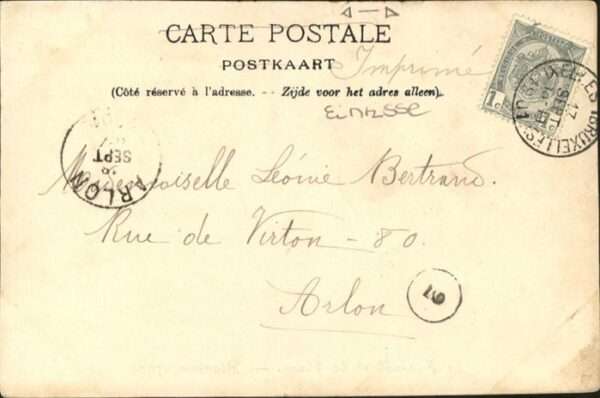 CARTE POSTALE
POSTKAART
Imprimé
(Côté réservé à l'adresse. -- Zijde voor het adres alleen).
1c
IXELLES (BRUXELLES)
17
SEPT
ARLON
SEPT
Mademoiselle Léonie Bertrand.
Rue de Virton - 80.
Arlon